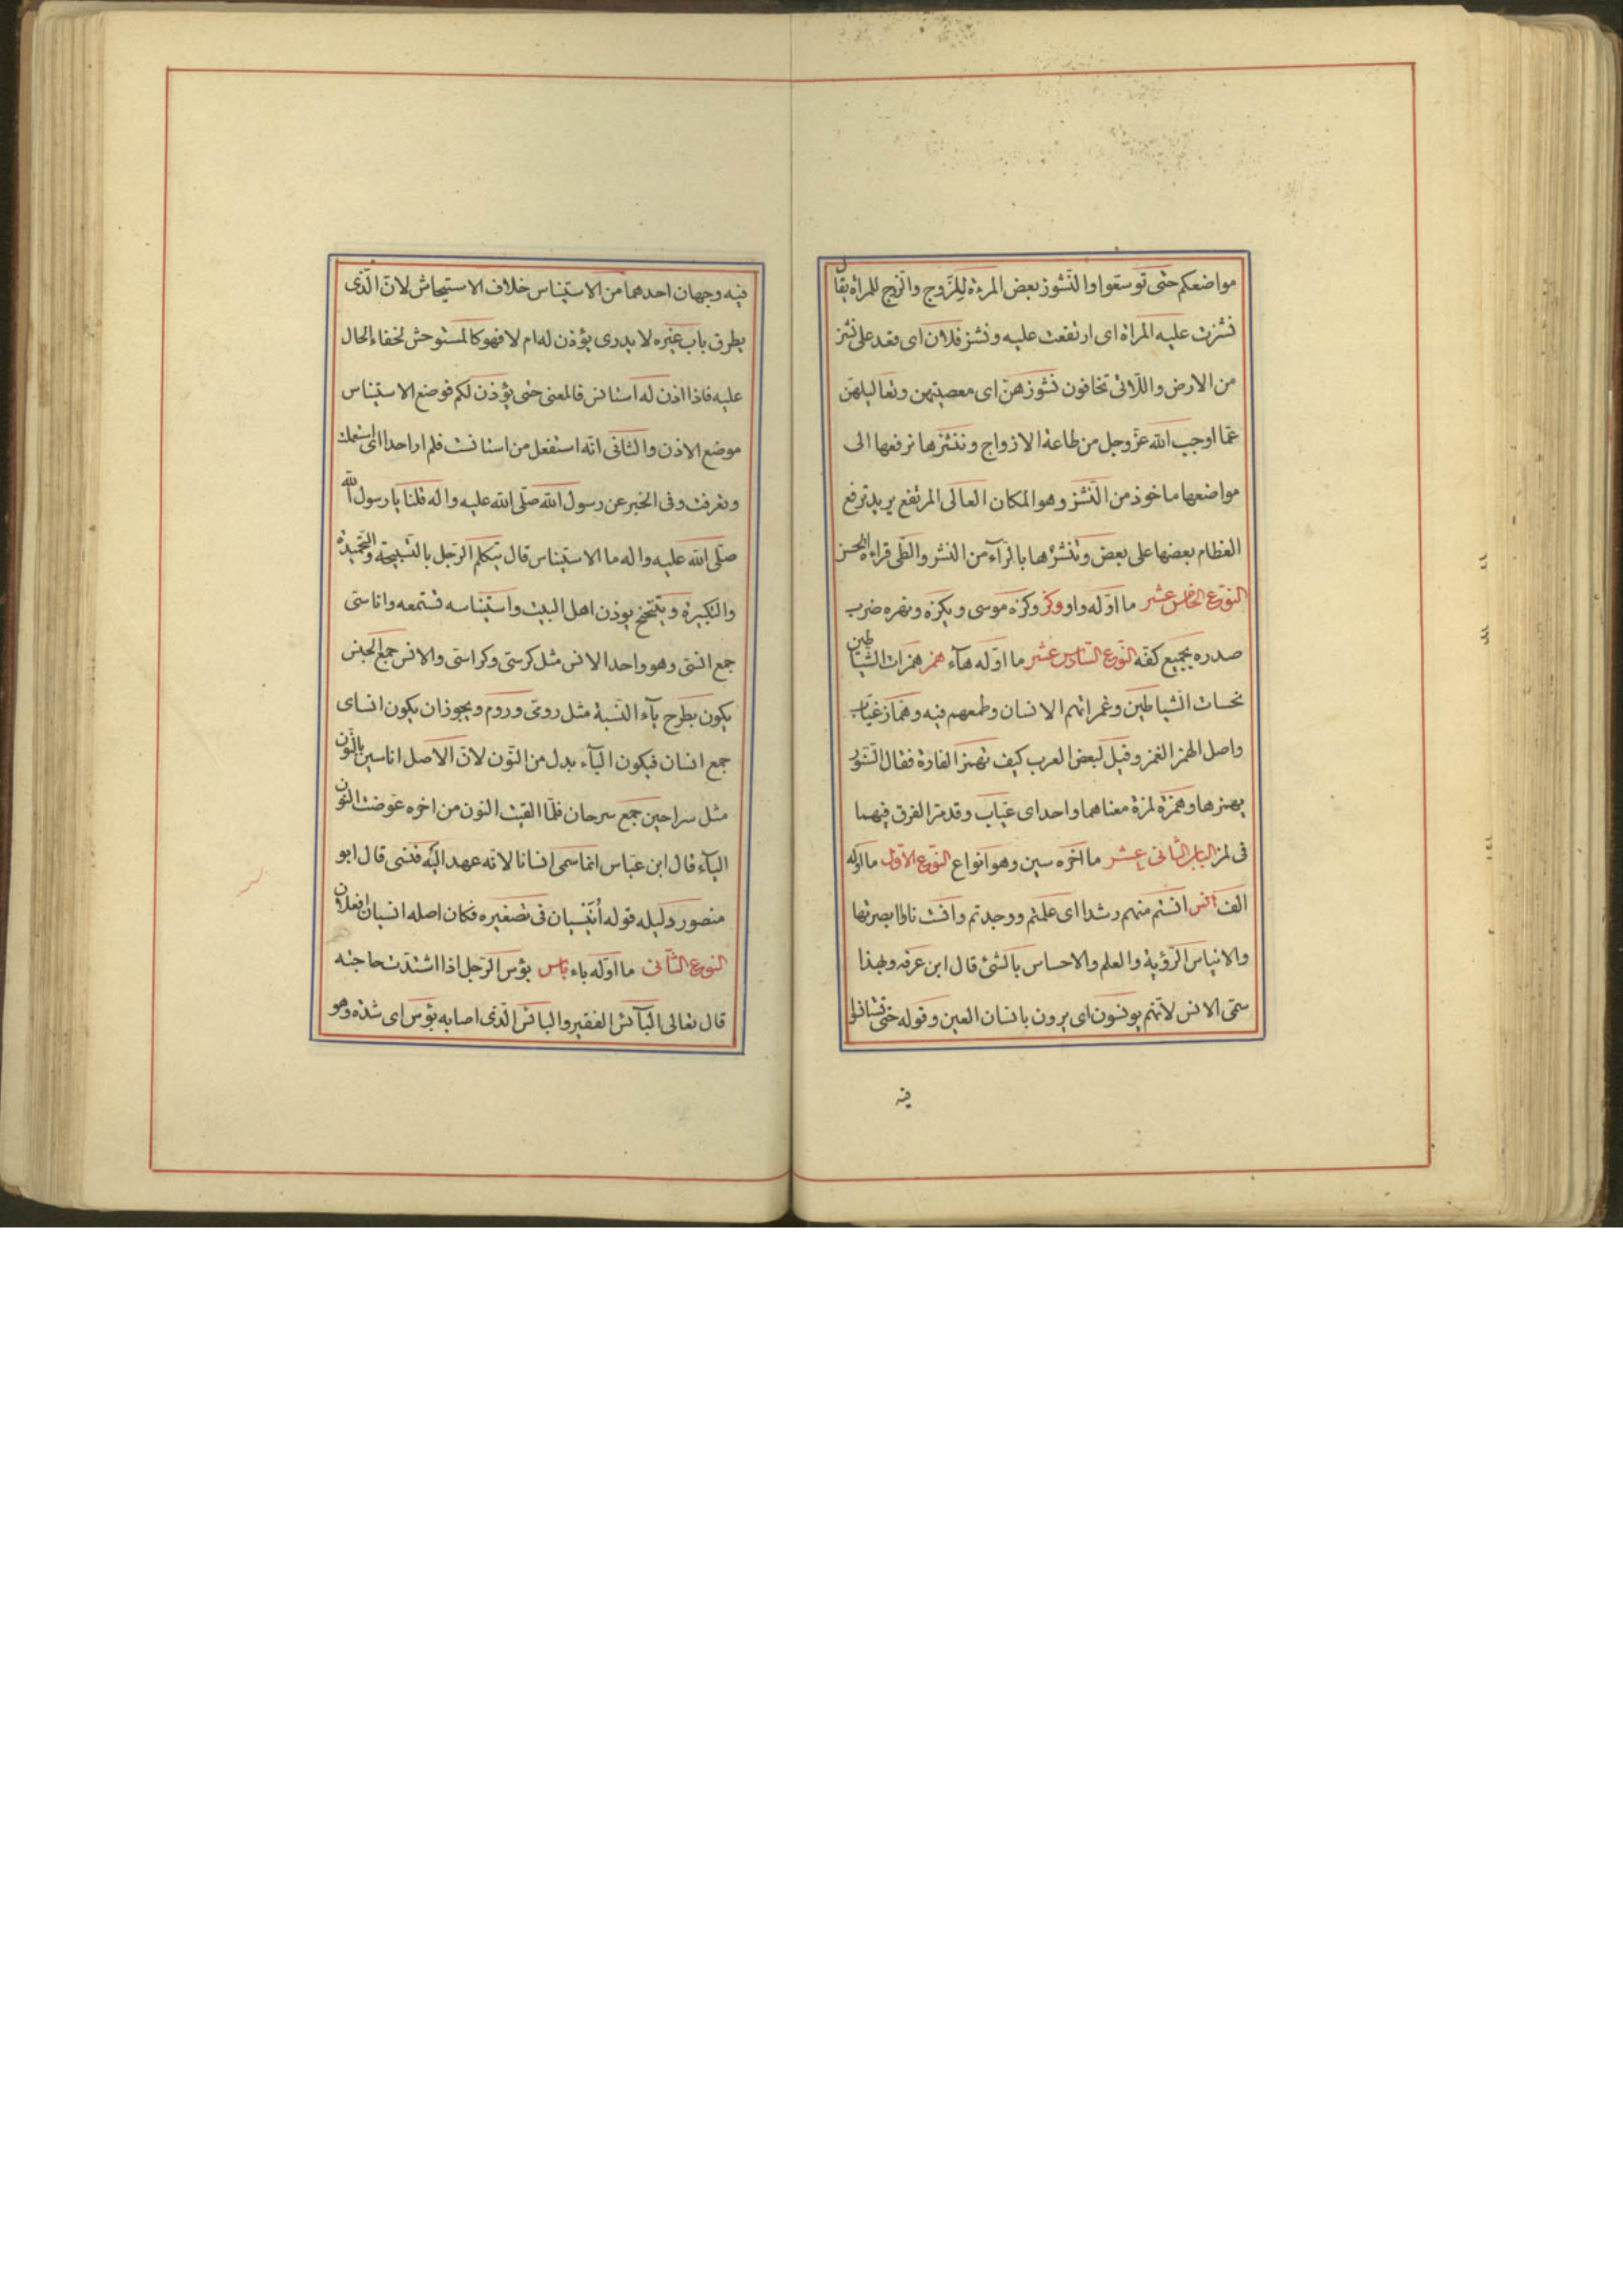 مواضعكم حتى توسعوا والنشوز بعض المرءة للزوج والزوج للمراة يقال
نشزت عليه المراة اى ارتفعت عليه ونشز فلان اى قعد على نشز
من الارض واللاتى تخافون نشوزهن اى معصيتهن وتعاليهن
عما اوجب الله عز وجل من طاعة الازواج وننشزها نرفعها الى
مواضعها ماخوذ من النشز وهو المكان العالى المرتفع يريد نرفع
العظام بعضها على بعض وننشرها بالرآء من النشر والطى قراءة الحسن
النوع الخامس عشر ما اوله واو وكز وكزه موسى ويكزه ونهره ضرب
صدره بجميع كفه النوع السادس عشر ما اوله هآء همز همزات الشياطين
نخسات الشياطين وغمراتهم الانسان وطمعهم فيه وهماز غياب
واصل الهمز الغمز وقيل لبعض العرب كيف تهمز الفارة فقال السنور
يهمزها وهمزة لمزة معناهما واحد اى عياب وقد مر الفرق فيهما
فى لمز الباب الثانى عشر ما اخره سين وهو انواع النوع الاول ما اوله
الف انس انستم منهم رشدا اى علمتم ووجدتم وانست نارا ابصرتها
والايناس الرؤية والعلم والاحساس بالشئ قال ابن عرفه وبهذا
سمى الانس لانهم يونسون اى يرون بانسان العين وقوله حتى تستانسوا
فيه
فيه وجهان احدهما من الاستيناس خلاف الاستيحاش لان الذى
يطرق باب غيره لا يدرى يؤذن له ام لا فهو كالمستوحش لخفاء الحال
عليه فاذا اذن له استانس فالمعنى حتى يؤذن لكم فوضع الاستيناس
موضع الاذن والثانى انه استفعل من استانست فلم ار احدا اى استعلمت
وتعرفت وفى الخبر عن رسول الله صلى الله عليه واله قلنا يا رسول الله
صلى الله عليه واله ما الاستيناس قال يتكلم الرجل بالتسبيحة والتحميدة
والتكبيرة ويتنحنح يوذن اهل البيت واستيناسه تستمعه واناسى
جمع انسى وهو واحد الانس مثل كرسى وكراسى والانس جمع الجنس
يكون بطرح يآء النسبة مثل رومى وروم ويجوز ان يكون اناسى
جمع انسان فيكون اليآء بدل من النون لان الاصل اناسين بالنون
مثل سراحين جمع سرحان فلما القيت النون من اخره عوضت النون
اليآء قال ابن عباس انما سمى انسانا لانه عهد اليه فنسى قال ابو
منصور دليله قوله أنيسيان فى تصغيره فكان اصله انسيان افعلان
النوع الثانى ما اوله باء باس بؤس الرجل اذا اشتدت حاجته
قال تعالى البآئس الفقير والبائس الذى اصابه بؤس اى شدة وهو